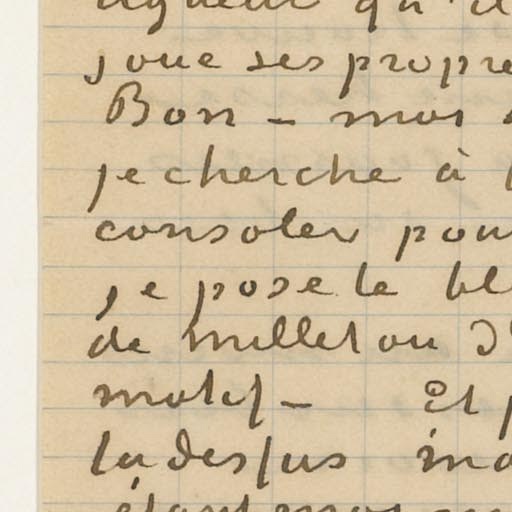 joue ses propre
Bon – moi
je cherche à
consoler pour
je pose le bl
de millet ou d'
motif – Et
la dessus
étant